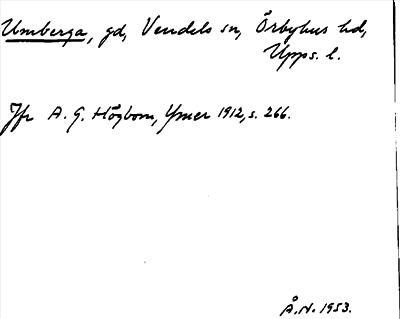 Umberga, gd, Vendels sn, Örbyhus hd,
Upps. l.
Jfr A. G. Högbom, Ymer 1912, s. 266.
Å.N. 1953.